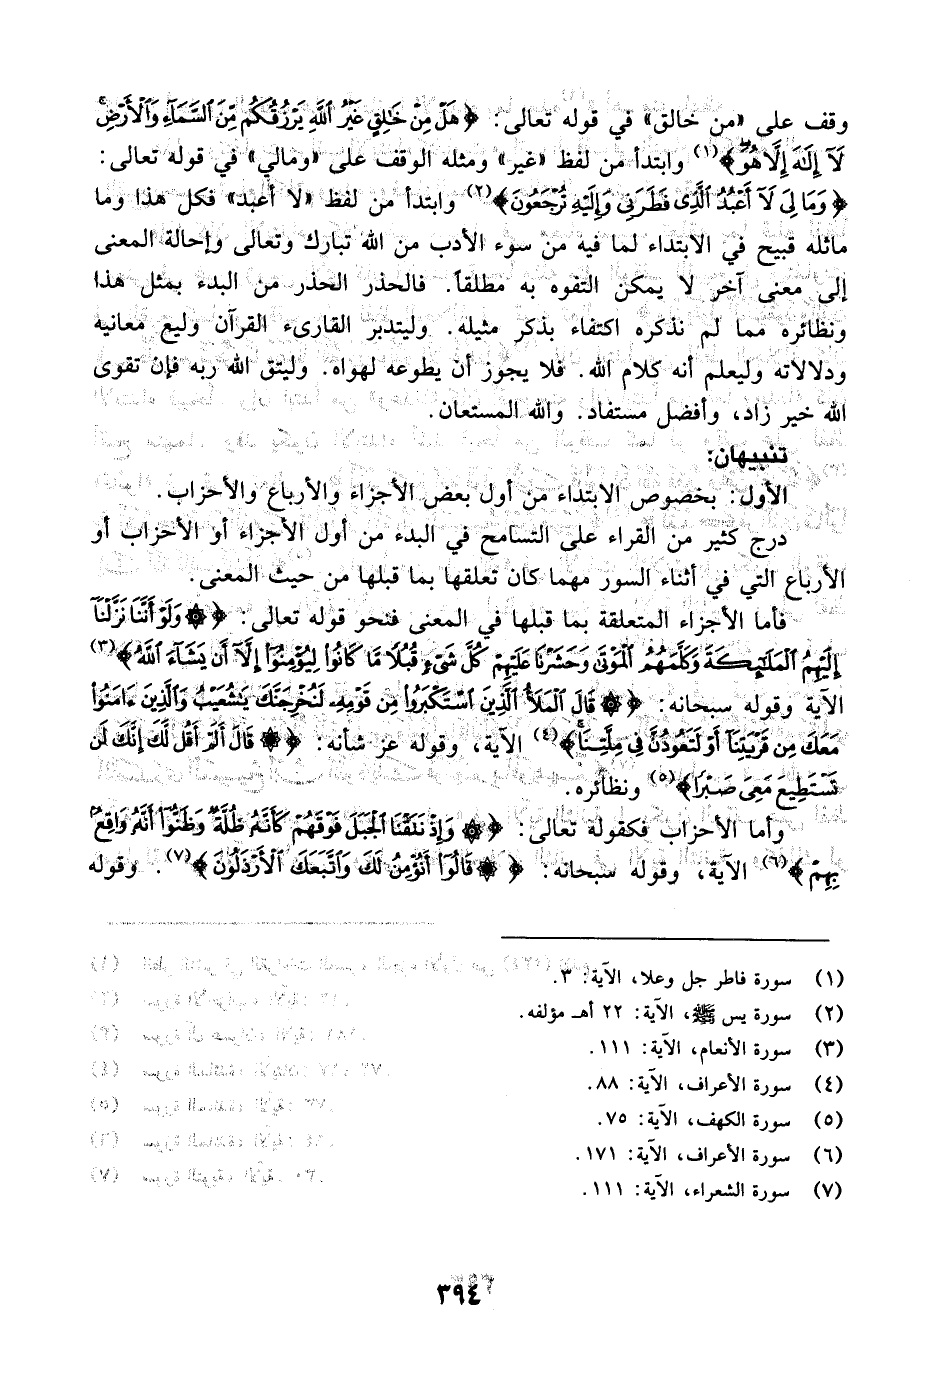 وقف على «من خالق» في قوله تعالى: ﴿هَلْ مِنْ خَٰلِقٍ غَيْرُ ٱللَّهِ يَرْزُقُكُم مِّنَ ٱلسَّمَآءِ وَٱلْأَرْضِۚ
لَآ إِلَٰهَ إِلَّا هُوَۖ﴾(١) وابتدأ من لفظ «غير» ومثله الوقف على «ومالي» في قوله تعالى:
﴿وَمَا لِىَ لَآ أَعْبُدُ ٱلَّذِى فَطَرَنِى وَإِلَيْهِ تُرْجَعُونَ﴾(٢) وابتدأ من لفظ «لا أعبد» فكل هذا وما
ماثله قبيح في الابتداء لما فيه من سوء الأدب من الله تبارك وتعالى وإحالة المعنى
إلى معنى آخر لا يمكن التفوه به مطلقاً. فالحذر الحذر من البدء بمثل هذا
ونظائره مما لم نذكره اكتفاء بذكر مثيله. وليتدبر القارىء القرآن وليع معانيه
ودلالاته وليعلم أنه كلام الله. فلا يجوز أن يطوعه لهواه. وليتق الله ربه فإن تقوى
الله خير زاد، وأفضل مستفاد. والله المستعان.
تنبيهان:
الأول: بخصوص الابتداء من أول بعض الأجزاء والأرباع والأحزاب.
درج كثير من القراء على التسامح في البدء من أول الأجزاء أو الأحزاب أو
الأرباع التي في أثناء السور مهما كان تعلقها بما قبلها من حيث المعنى.
فأما الأجزاء المتعلقة بما قبلها في المعنى فنحو قوله تعالى: ﴿۞ وَلَوْ أَنَّنَا نَزَّلْنَآ
إِلَيْهِمُ ٱلْمَلَٰٓئِكَةَ وَكَلَّمَهُمُ ٱلْمَوْتَىٰ وَحَشَرْنَا عَلَيْهِمْ كُلَّ شَىْءٍ قُبُلًا مَّا كَانُوا۟ لِيُؤْمِنُوٓا۟ إِلَّآ أَن يَشَآءَ ٱللَّهُ﴾(٣)
الآية وقوله سبحانه: ﴿۞ قَالَ ٱلْمَلَأُ ٱلَّذِينَ ٱسْتَكْبَرُوا۟ مِن قَوْمِهِۦ لَنُخْرِجَنَّكَ يَٰشُعَيْبُ وَٱلَّذِينَ ءَامَنُوا۟
مَعَكَ مِن قَرْيَتِنَآ أَوْ لَتَعُودُنَّ فِى مِلَّتِنَاۚ﴾(٤) الآية، وقوله عز شأنه: ﴿۞ قَالَ أَلَمْ أَقُل لَّكَ إِنَّكَ لَن
تَسْتَطِيعَ مَعِىَ صَبْرًا﴾(٥) ونظائره.
وأما الأحزاب فكقولة تعالى: ﴿۞ وَإِذْ نَتَقْنَا ٱلْجَبَلَ فَوْقَهُمْ كَأَنَّهُۥ ظُلَّةٌ وَظَنُّوٓا۟ أَنَّهُۥ وَاقِعٌۢ
بِهِمْ﴾(٦) الآية، وقوله سبحانه: ﴿۞ قَالُوٓا۟ أَنُؤْمِنُ لَكَ وَٱتَّبَعَكَ ٱلْأَرْذَلُونَ﴾(٧). وقوله
(١) سورة فاطر جل وعلا، الآية: ٣.
(٢) سورة يس ﷺ، الآية: ٢٢ أهـ مؤلفه.
(٣) سورة الأنعام، الآية: ١١١.
(٤) سورة الأعراف، الآية: ٨٨.
(٥) سورة الكهف، الآية: ٧٥.
(٦) سورة الأعراف، الآية: ١٧١.
(٧) سورة الشعراء، الآية: ١١١.
٣٩٤